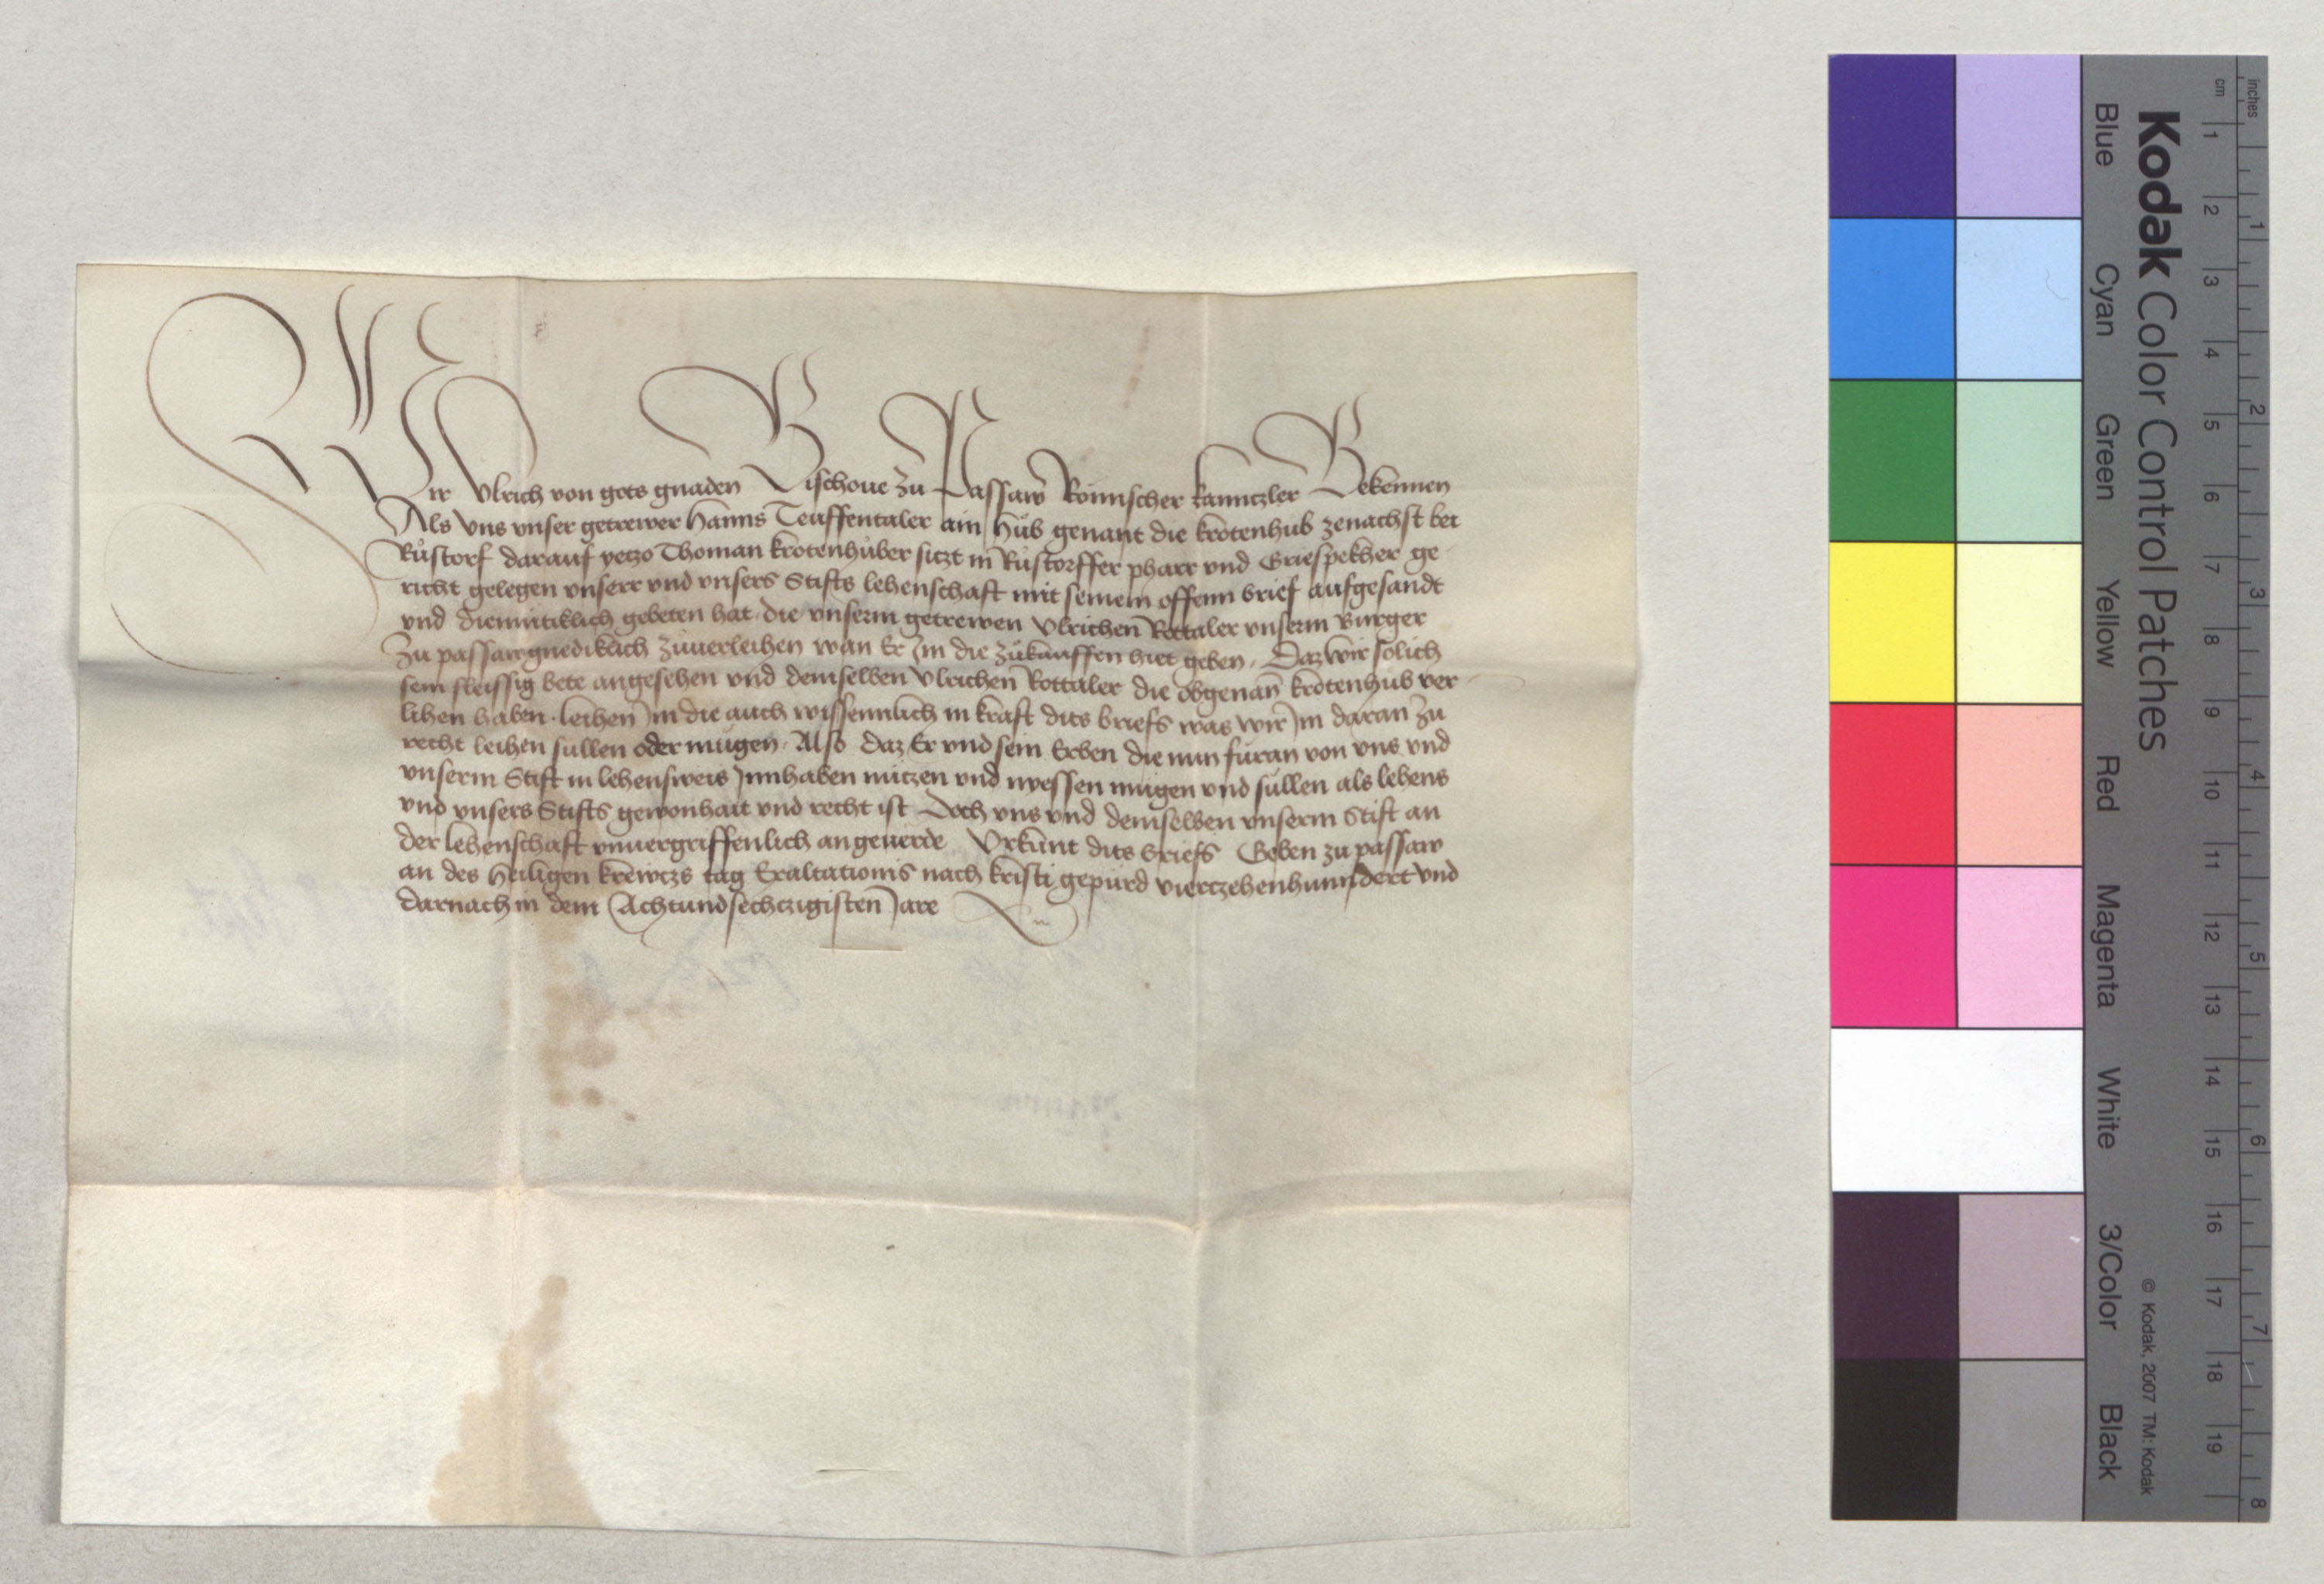 Wir Ulrich von gots gnaden Bischoue zu Passaw Römischer kanntzler Bekennen
Als vns vnser getrewer Hanns Teuffentaler ain Hůb genant die krotenhůb zenachst bei
Růstorf darauf yetzo Thoman krotenhůber sitzt in Růstorffer pharr vnd Griespekher ge
richt gelegen vnserr vnd vnsers Stifts lehenschaft mit seinem offenn brief aufgesandt
vnd diemutiklich gebeten hat die vnserm getrewen Vlrichen Rottaler vnserm Burger
zu passaw gnediklich zuuerleihen wan Er Im die zukauffen hiet geben. Daz wir solich
sein fleissig bete angesehen vnd demselben Vlrichen Rottaler die obgenan krotenhůb ver
lihen haben. leihen Im die auch wissennlich in kraft dits briefs was wir Im daran zu
recht leihen sullen oder mugen. Also daz Er vnd sein Erben die nun füran von vns vnd
vnserm Stift in lehensweis Innhaben nutzen vnd nyessen mugen vnd sullen als lehens
vnd vnsers Stifts gewonhait vnd recht ist Doch vns vnd demselben vnserm Stift an
der lehenschaft vnuergriffenlich angeuerde Vrkunt dits briefs Geben zu passaw
an des Heiligen krewtzs tag Exaltationis nach kristi gepurd vierczehenhunndert vnd
darnach in dem Achtundsechczigisten Jare
Kodak Color Control Patches
Blue Cyan Green Yellow Red Magenta White 3/Color Black
© Kodak, 2007 TM: Kodak
cm 1 2 3 4 5 6 7 8 9 10 11 12 13 14 15 16 17 18 19
inches 1 2 3 4 5 6 7 8